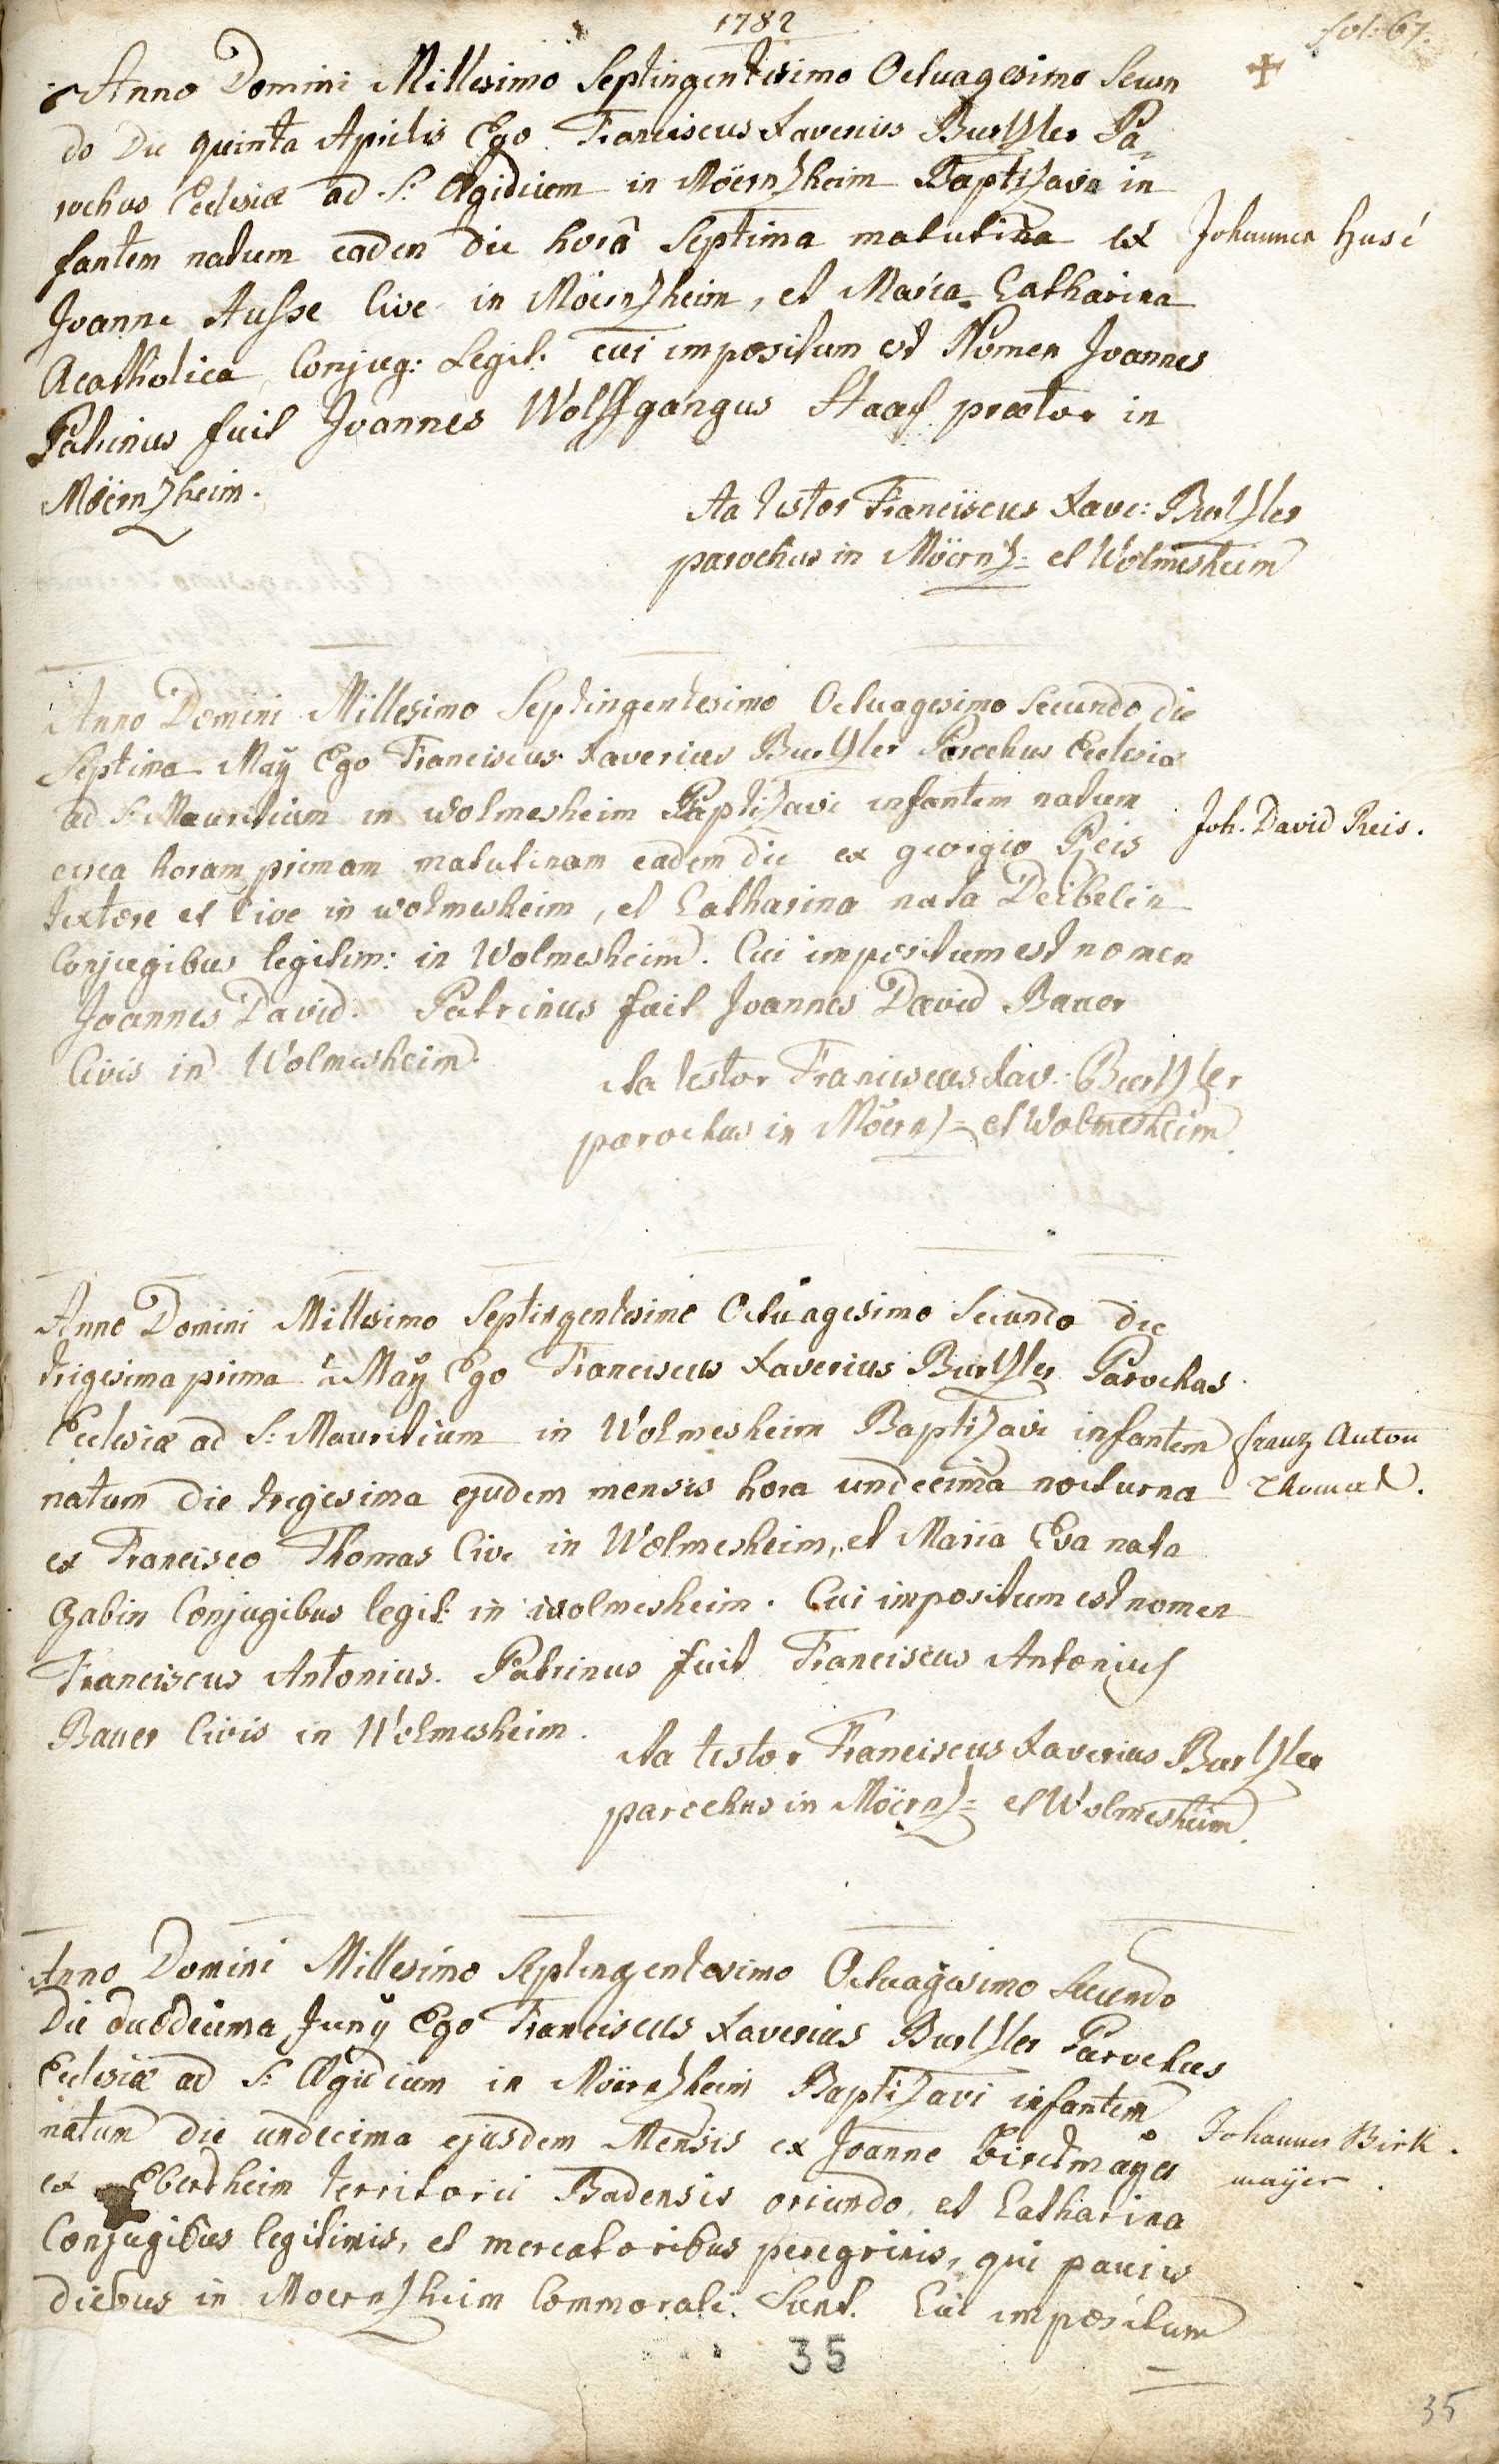 1782
fol: 67.
Anno Domini Millesimo Septingentesimo Octuagesimo Secun
do Die quinta Aprilis Ego Franciscus Xaverius Burtzler Pa-
rochus Ecclesiæ ad S: Ægidium in Möernzheim Baptizavi in
fantem natum eaden die horâ Septima matutina ex
Johannes Husé
Joanne Husse Cive in Möernzheim, et Maria Catharina
Acatholica Conjug: Legit: cui impositum est Nomen Joannes
Patrinus fuit Joannes Wolffgangus Staaf prætor in
Möernzheim.
Ita testor Franciscus Xave: Burtzler
parochus in Möernz= et Wolmesheim
Anno Domini Millesimo Septingentesimo Octuagesimo Secundo die
Septima Maÿ Ego Franciscus Xaverius Burtzler Parochus Ecclesiæ
ad S: Mauritium in Wolmesheim Baptizavi infantem natum
Joh. David Reis.
circa horam primam matutinam eadem die ex georgio Reis
textore et Cive in wolmesheim, et Catharina nata Deibelin
Conjugibus legitim: in Wolmesheim. Cui impositum est nomen
Joannes David. Patrinus fuit Joannes David Bauer
Civis in Wolmesheim.
Ita testor Franciscus Xav: Burtzler
parochus in Möernz= et Wolmesheim.
Anno Domini Millesimo Septingentesimo Octuagesimo Secundo die
trigesima prima Maÿ Ego Franciscus Xaverius Burtzler Parochus
Ecclesiæ ad S: Mauritium in Wolmesheim Baptizavi infantem
franz Anton
natum die tregesima ejudem mensis hora undecima nocturna
Thomas.
ex Francisco Thomas Cive in Wolmesheim, et Maria Eva nata
Gabin Conjugibus legit: in wolmesheim. Cui impositum est nomen
Franciscus Antonius. Patrinus fuit Franciscus Antonius
Bauer Civis in Wolmesheim.
Ita testor Franciscus Xaverius Burtzler
parochus in Möernz= et Wolmesheim.
Anno Domini Millesimo Septingentesimo Octuagesimo Secundo
Die duodecima Junÿ Ego Franciscus Xaverius Burtzler Parochus
Ecclesiæ ad S: Ægidium in Möernzheim Baptizavi infantem
natum die undecima ejusdem Mensis ex Joanne Birckmayer
Johannes Birk
mayer
ex Ebersheim territorii Badensis oriundo, et Catharina
Conjugibus legitimis, et mercatoribus peregrinis, qui paucis
diebus in Moernzheim Commorati Sunt. Cui impositum
35
35